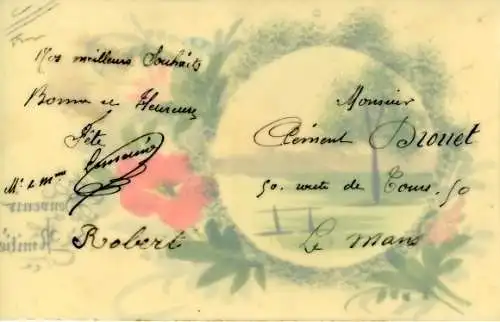 Nos meilleurs Souhaits
Bonne et Heureuse
Fête
Mr & Mme
Robert
Monsieur
Clément Drouet
50. route de Tours. 50
Le Mans
Souvenir
Amitié